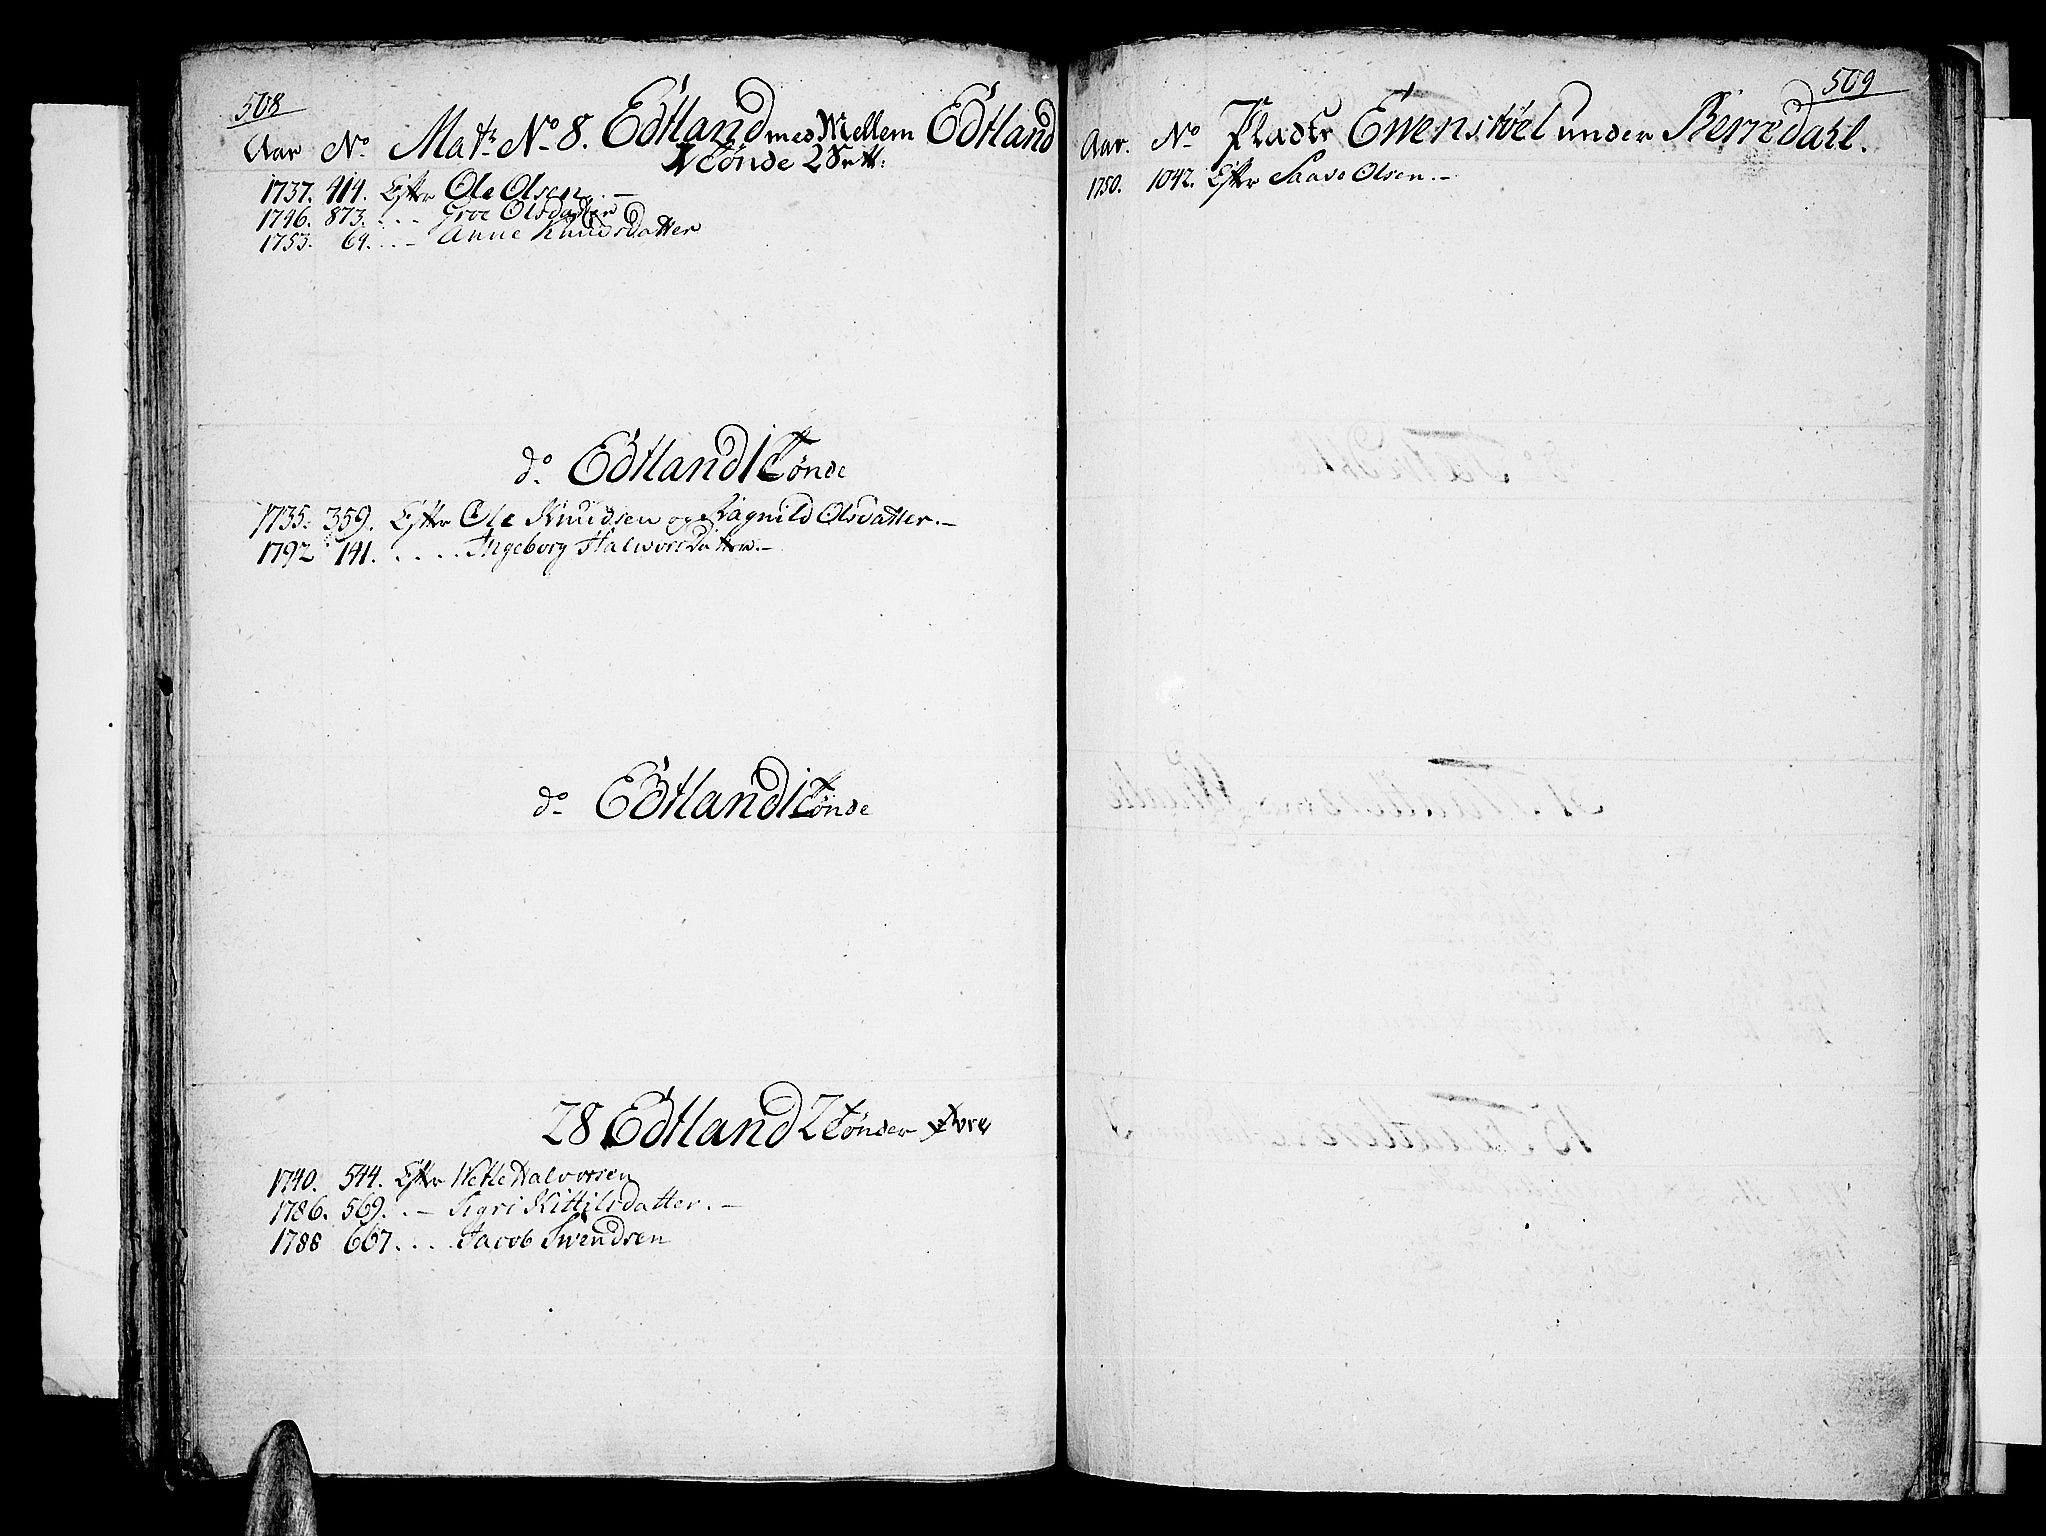 508
Aar No Matr No 8. Edtland med Mellem Edtland
1 Tønde 2 Sett:
1737. 414. Efter Ole Olsen. –
1746. 873. . . . Groe Olsdatter
1753. 64. . . – Anne Knudsdatter
do Edtland 1 Tønde
1735. 359. Efter Ole Knudsen og Ragnild Olsdatter. –
1792 141. . . . . Ingeborg Halvorsdatter. –
do Edtland 1 Tønde
28 Edtland 2 Tønder
1740. 544. Efter Wetle Halvorsen
1786. 569. . – Sigri Kittilsdatter. –
1788 667. . . . Jacob Swendsen
509
Aar. No Pladts Ewenstøel under Berredahl.
1750. 1042. Efter Saave Olsen. –